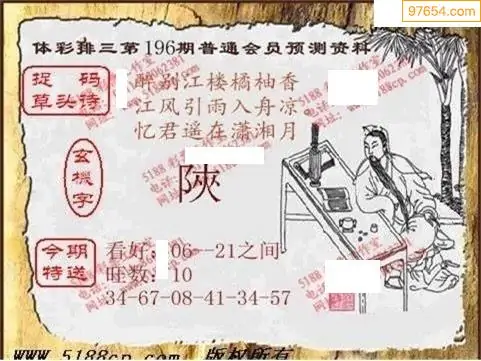 97654.com
体彩排三第196期普通会员预测资料
捉 码
草头诗
醉别江楼橘柚香
江风引雨入舟凉
忆君遥在潇湘月
玄機字
陝
今期
特送
看好:06--21之间
旺数:10
34-67-08-41-34-57
www.5188cp.com 版权所有